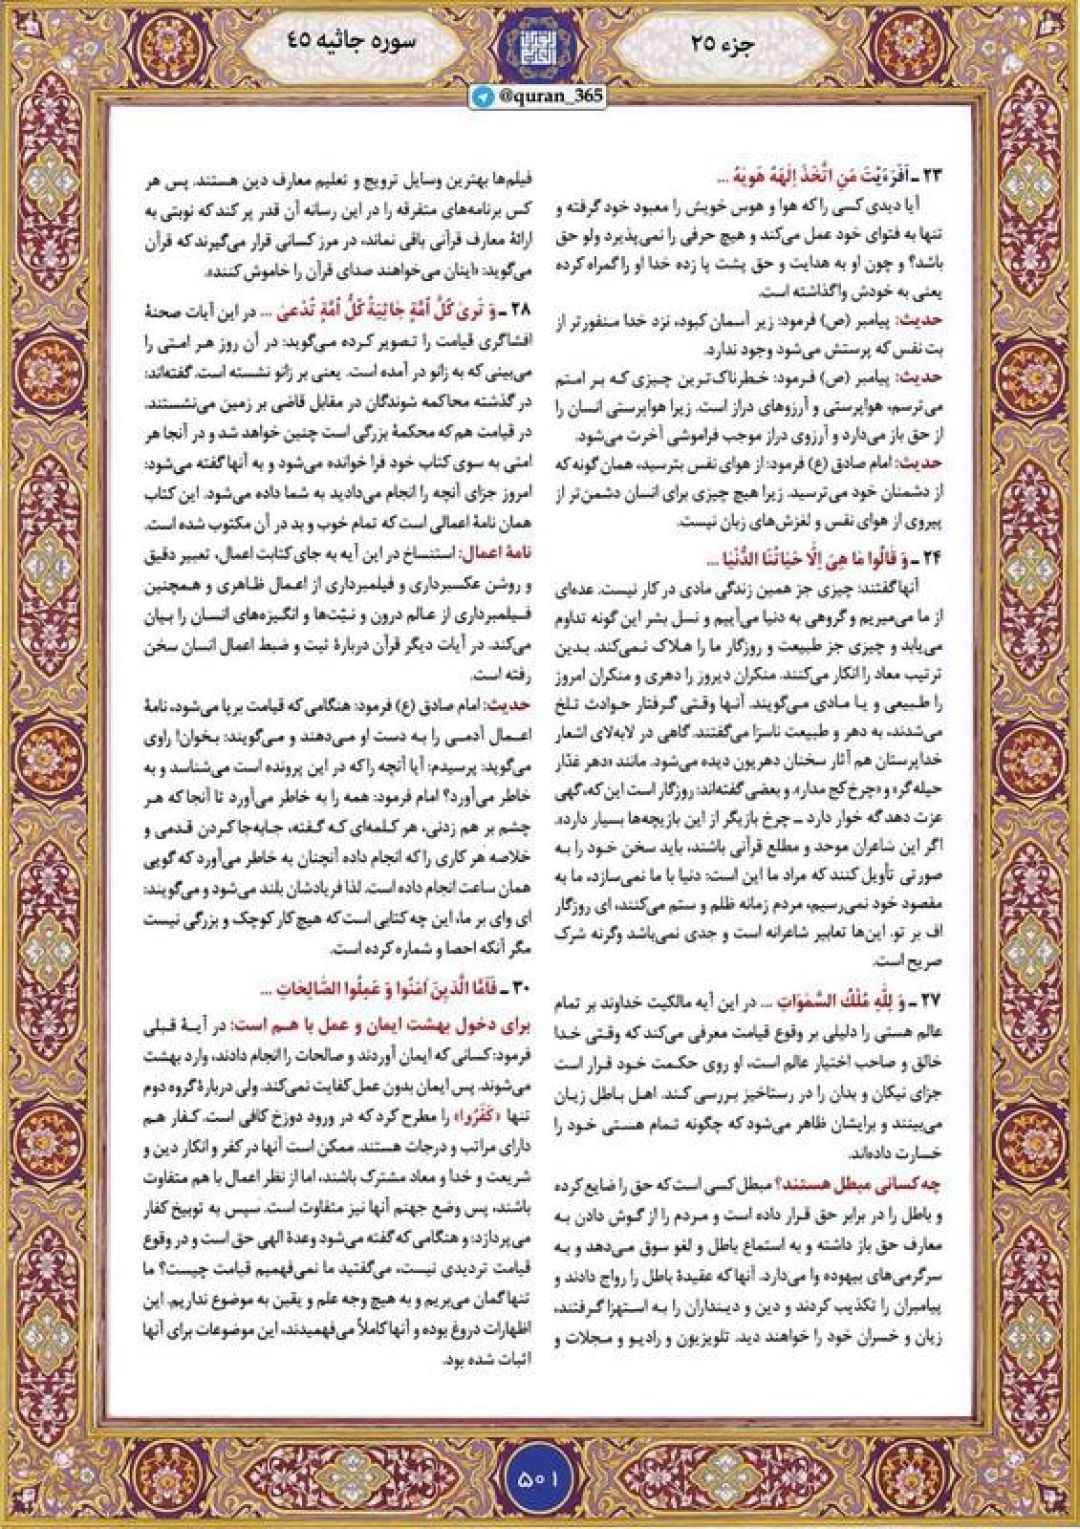 جزء ۲۵
سوره جاثیه ۴۵
@quran_365
۲۳ ـ اَفَرَءَیْتَ مَنِ اتَّخَذَ اِلٰهَهُ هَویٰهُ ...
آیا دیدی کسی را که هوا و هوس خویش را معبود خود گرفته و
تنها به فتوای خود عمل می‌کند و هیچ حرفی را نمی‌پذیرد ولو حق
باشد؟ و چون او به هدایت و حق پشت پا زده خدا او را گمراه کرده
یعنی به خودش واگذاشته است.
حدیث: پیامبر (ص) فرمود: زیر آسمان کبود، نزد خدا منفورتر از
بت نفس که پرستش می‌شود وجود ندارد.
حدیث: پیامبر (ص) فرمود: خطرناک‌ترین چیزی که بر امتم
می‌ترسم، هواپرستی و آرزوهای دراز است. زیرا هواپرستی انسان را
از حق باز می‌دارد و آرزوی دراز موجب فراموشی آخرت می‌شود.
حدیث: امام صادق (ع) فرمود: از هوای نفس بترسید، همان گونه که
از دشمنان خود می‌ترسید. زیرا هیچ چیزی برای انسان دشمن‌تر از
پیروی از هوای نفس و لغزش‌های زبان نیست.
۲۴ ـ وَ قَالُوا مَا هِیَ اِلَّا حَیَاتُنَا الدُّنْیَا ...
آنها گفتند: چیزی جز همین زندگی مادی در کار نیست. عده‌ای
از ما می‌میریم و گروهی به دنیا می‌آییم و نسل بشر این گونه تداوم
می‌یابد و چیزی جز طبیعت و روزگار ما را هلاک نمی‌کند. بدین
ترتیب معاد را انکار می‌کنند. منکران دیروز را دهری و منکران امروز
را طبیعی و یا مادی می‌گویند. آنها وقتی گرفتار حوادث تلخ
می‌شدند، به دهر و طبیعت ناسزا می‌گفتند. گاهی در لابه‌لای اشعار
خداپرستان هم آثار سخنان دهریون دیده می‌شود. مانند «دهر غدّار
حیله‌گر» و «چرخ کج مدار». و بعضی گفته‌اند: روزگار است این که، گهی
عزت دهد گه خوار دارد ـ چرخ بازیگر از این بازیچه‌ها بسیار دارد».
اگر این شاعران موحد و مطلع قرآنی باشند، باید سخن خود را به
صورتی تأویل کنند که مراد ما این است: دنیا با ما نمی‌سازد، ما به
مقصود خود نمی‌رسیم، مردم زمانه ظلم و ستم می‌کنند، ای روزگار
اف بر تو. این‌ها تعابیر شاعرانه است و جدی نمی‌باشد وگرنه شرک
صریح است.
۲۷ ـ وَ لِلّٰهِ مُلْكُ السَّمٰوَاتِ ... در این آیه مالکیت خداوند بر تمام
عالم هستی را دلیلی بر وقوع قیامت معرفی می‌کند که وقتی خدا
خالق و صاحب اختیار عالم است، او روی حکمت خود قرار است
جزای نیکان و بدان را در رستاخیز بررسی کند. اهل باطل زیان
می‌بینند و برایشان ظاهر می‌شود که چگونه تمام هستی خود را
خسارت داده‌اند.
چه کسانی مبطل هستند؟ مبطل کسی است که حق را ضایع کرده
و باطل را در برابر حق قرار داده است و مردم را از گوش دادن به
معارف حق باز داشته و به استماع باطل و لغو سوق می‌دهد و به
سرگرمی‌های بیهوده وا می‌دارد. آنها که عقیدهٔ باطل را رواج دادند و
پیامبران را تکذیب کردند و دین و دینداران را به استهزا گرفتند،
زیان و خسران خود را خواهند دید. تلویزیون و رادیو و مجلات و
فیلم‌ها بهترین وسایل ترویج و تعلیم معارف دین هستند. پس هر
کس برنامه‌های متفرقه را در این رسانه آن قدر پر کند که نوبتی به
ارائهٔ معارف قرآنی باقی نماند، در مرز کسانی قرار می‌گیرند که قرآن
می‌گوید: «اینان می‌خواهند صدای قرآن را خاموش کنند».
۲۸ ـ وَ تَرىٰ كُلَّ اُمَّةٍ جَاثِیَةً كُلُّ اُمَّةٍ تُدْعىٰ ... در این آیات صحنهٔ
افشاگری قیامت را تصویر کرده می‌گوید: در آن روز هر امتی را
می‌بینی که به زانو در آمده است. یعنی بر زانو نشسته است. گفته‌اند:
در گذشته محاکمه شوندگان در مقابل قاضی بر زمین می‌نشستند.
در قیامت هم که محکمهٔ بزرگی است چنین خواهد شد و در آنجا هر
امتی به سوی کتاب خود فرا خوانده می‌شود و به آنها گفته می‌شود:
امروز جزای آنچه را انجام می‌دادید به شما داده می‌شود. این کتاب
همان نامهٔ اعمالی است که تمام خوب و بد در آن مکتوب شده است.
نامهٔ اعمال: استنساخ در این آیه به جای کتابت اعمال، تعبیر دقیق
و روشن عکسبرداری و فیلمبرداری از اعمال ظاهری و همچنین
فیلمبرداری از عالم درون و نیّت‌ها و انگیزه‌های انسان را بیان
می‌کند. در آیات دیگر قرآن دربارهٔ ثبت و ضبط اعمال انسان سخن
رفته است.
حدیث: امام صادق (ع) فرمود: هنگامی که قیامت برپا می‌شود، نامهٔ
اعمال آدمی را به دست او می‌دهند و می‌گویند: بخوان! راوی
می‌گوید: پرسیدم: آیا آنچه را که در این پرونده است می‌شناسد و به
خاطر می‌آورد؟ امام فرمود: همه را به خاطر می‌آورد تا آنجا که هر
چشم بر هم زدنی، هر کلمه‌ای که گفته، جابه‌جا کردن قدمی و
خلاصه هر کاری را که انجام داده آنچنان به خاطر می‌آورد که گویی
همان ساعت انجام داده است. لذا فریادشان بلند می‌شود و می‌گویند:
ای وای بر ما، این چه کتابی است که هیچ کار کوچک و بزرگی نیست
مگر آنکه احصا و شماره کرده است.
۳۰ ـ فَاَمَّا الَّذِینَ اٰمَنُوا وَ عَمِلُوا الصَّالِحَاتِ ...
برای دخول بهشت ایمان و عمل با هم است: در آیهٔ قبلی
فرمود: کسانی که ایمان آوردند و صالحات را انجام دادند، وارد بهشت
می‌شوند. پس ایمان بدون عمل کفایت نمی‌کند. ولی دربارهٔ گروه دوم
تنها «كَفَرُوا» را مطرح کرد که در ورود دوزخ کافی است. کفار هم
دارای مراتب و درجات هستند. ممکن است آنها در کفر و انکار دین و
شریعت و خدا و معاد مشترک باشند، اما از نظر اعمال با هم متفاوت
باشند، پس وضع جهنم آنها نیز متفاوت است. سپس به توبیخ کفار
می‌پردازد: و هنگامی که گفته می‌شود وعدهٔ الهی حق است و در وقوع
قیامت تردیدی نیست، می‌گفتید ما نمی‌فهمیم قیامت چیست؟ ما
تنها گمان می‌بریم و به هیچ وجه علم و یقین به موضوع نداریم. این
اظهارات دروغ بوده و آنها کاملاً می‌فهمیدند، این موضوعات برای آنها
اثبات شده بود.
۵۰۱